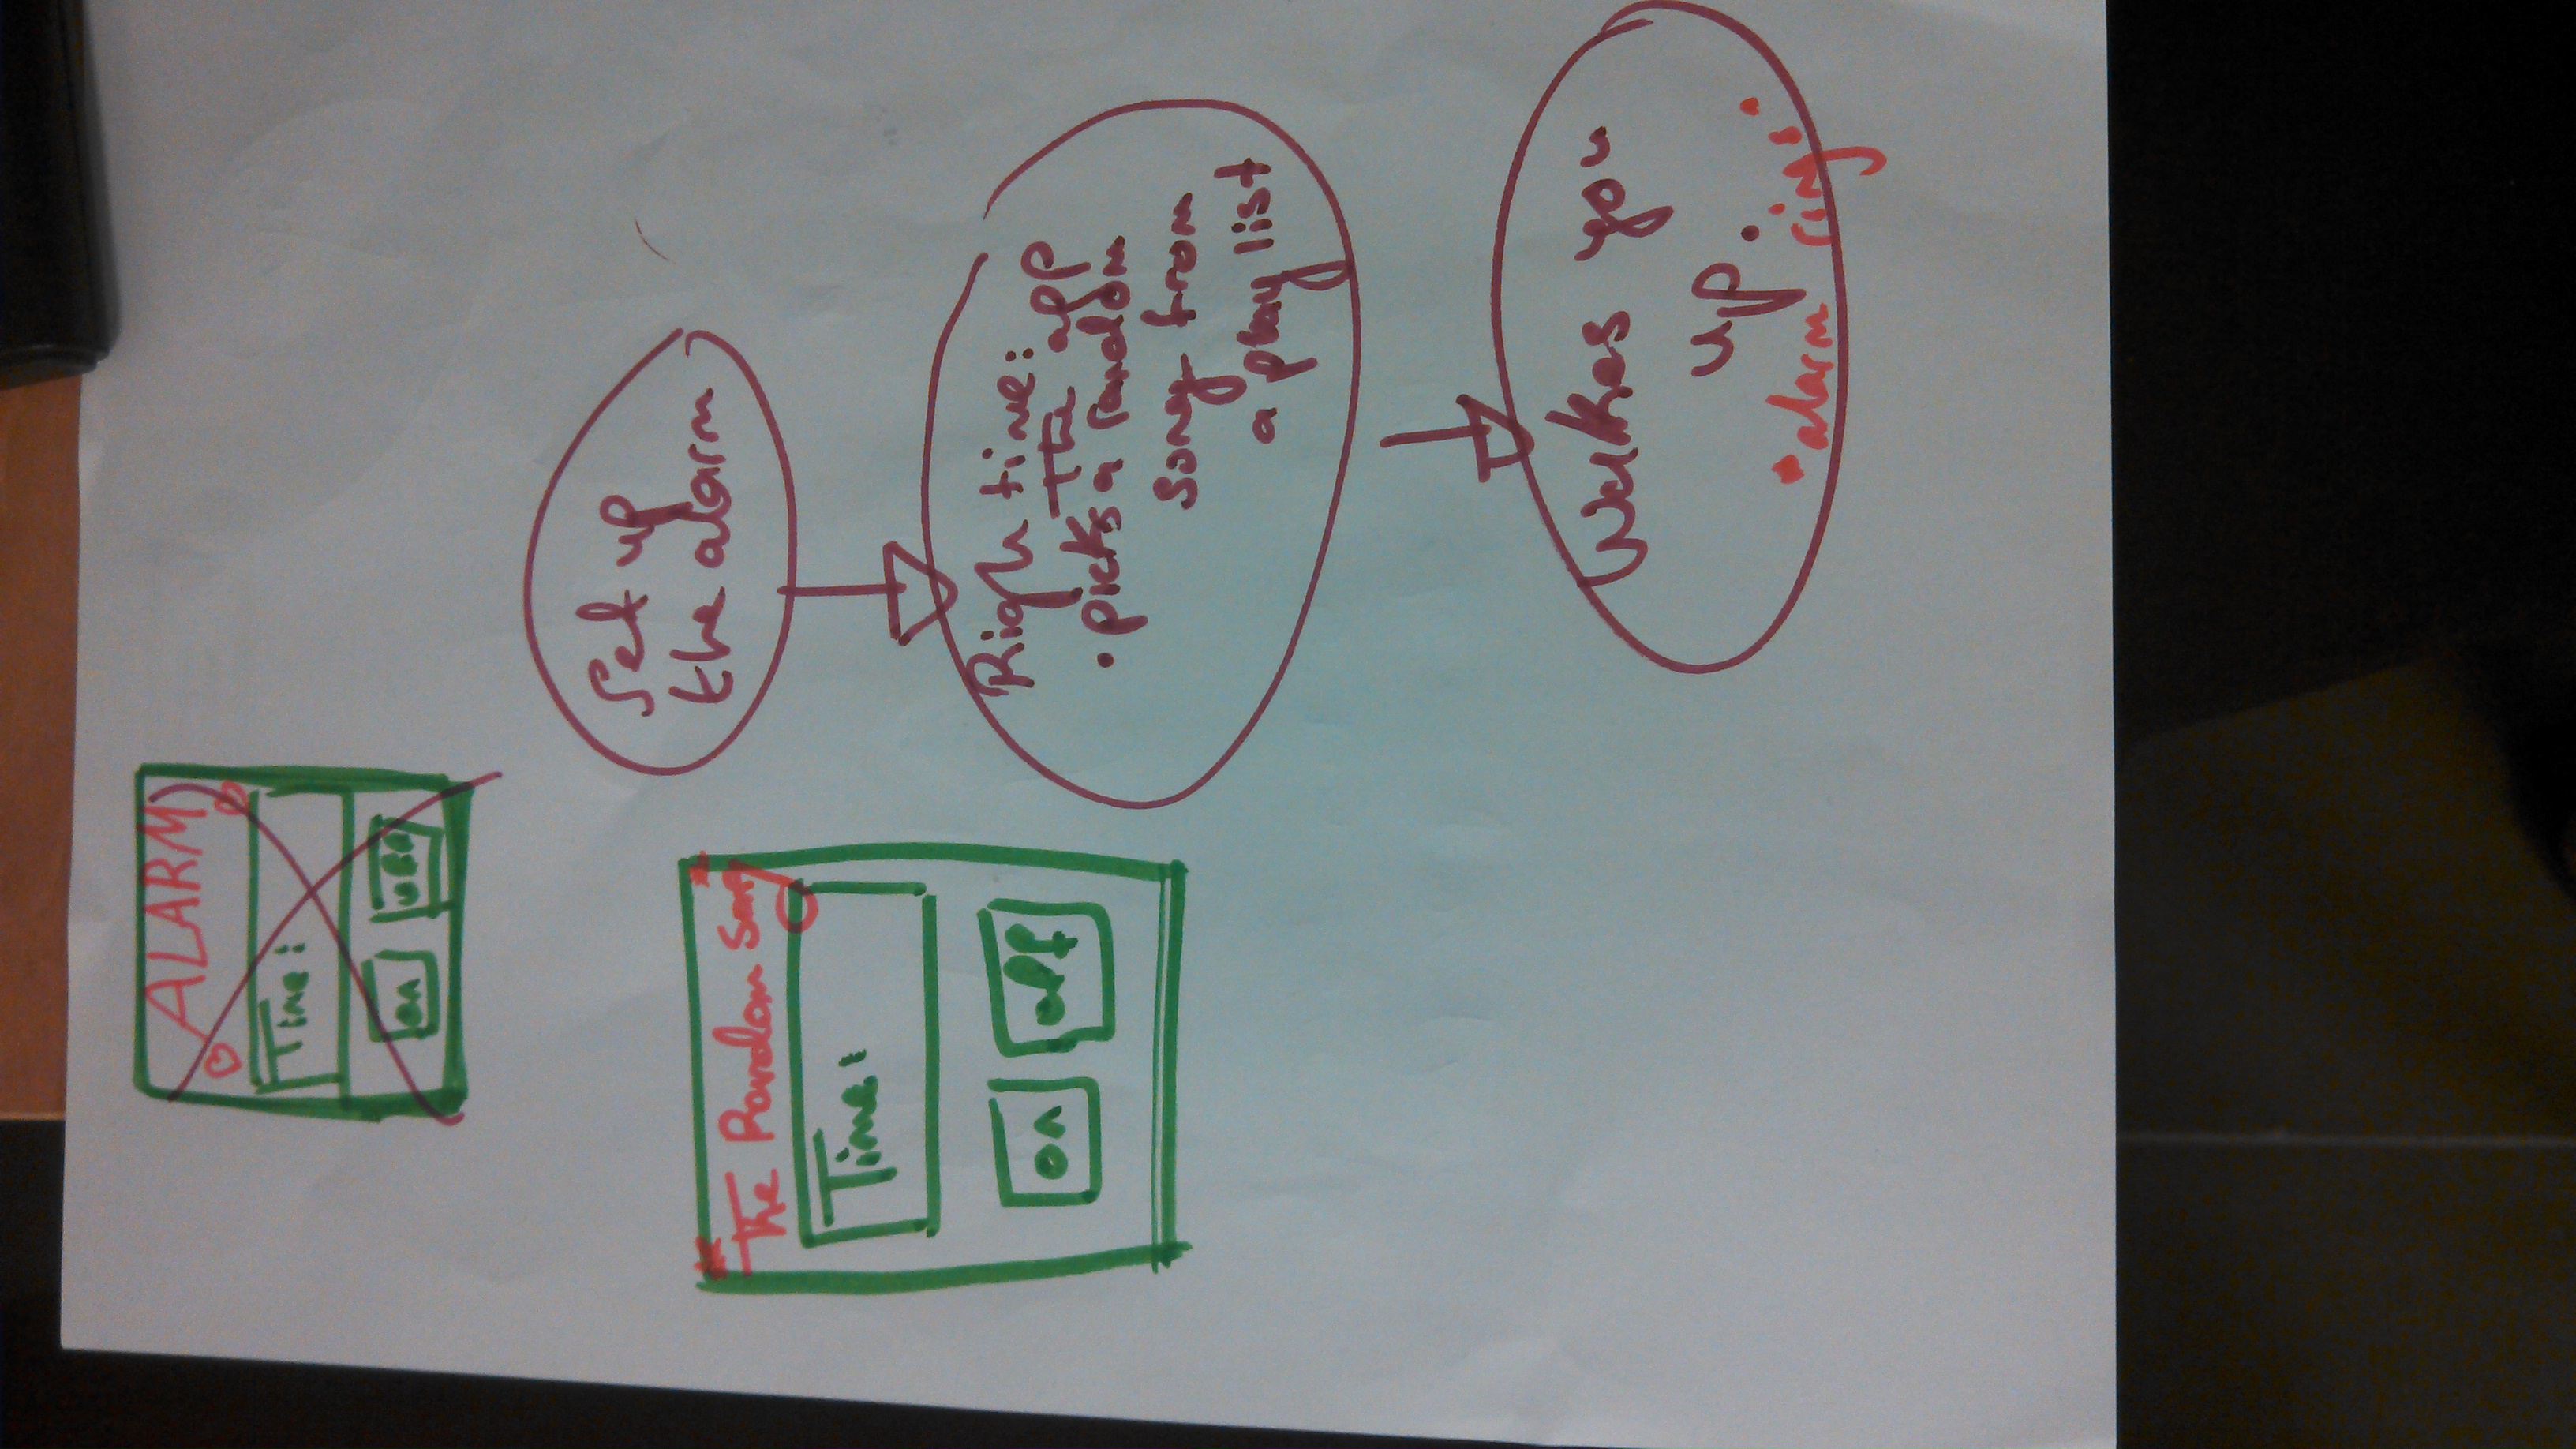 ALARM
Time:
on
The Random Song
Time:
on off
Set up
the alarm
Righ time:
The app
• picks a random
song from
a play list
Wakes you
up.
"alarm rings"